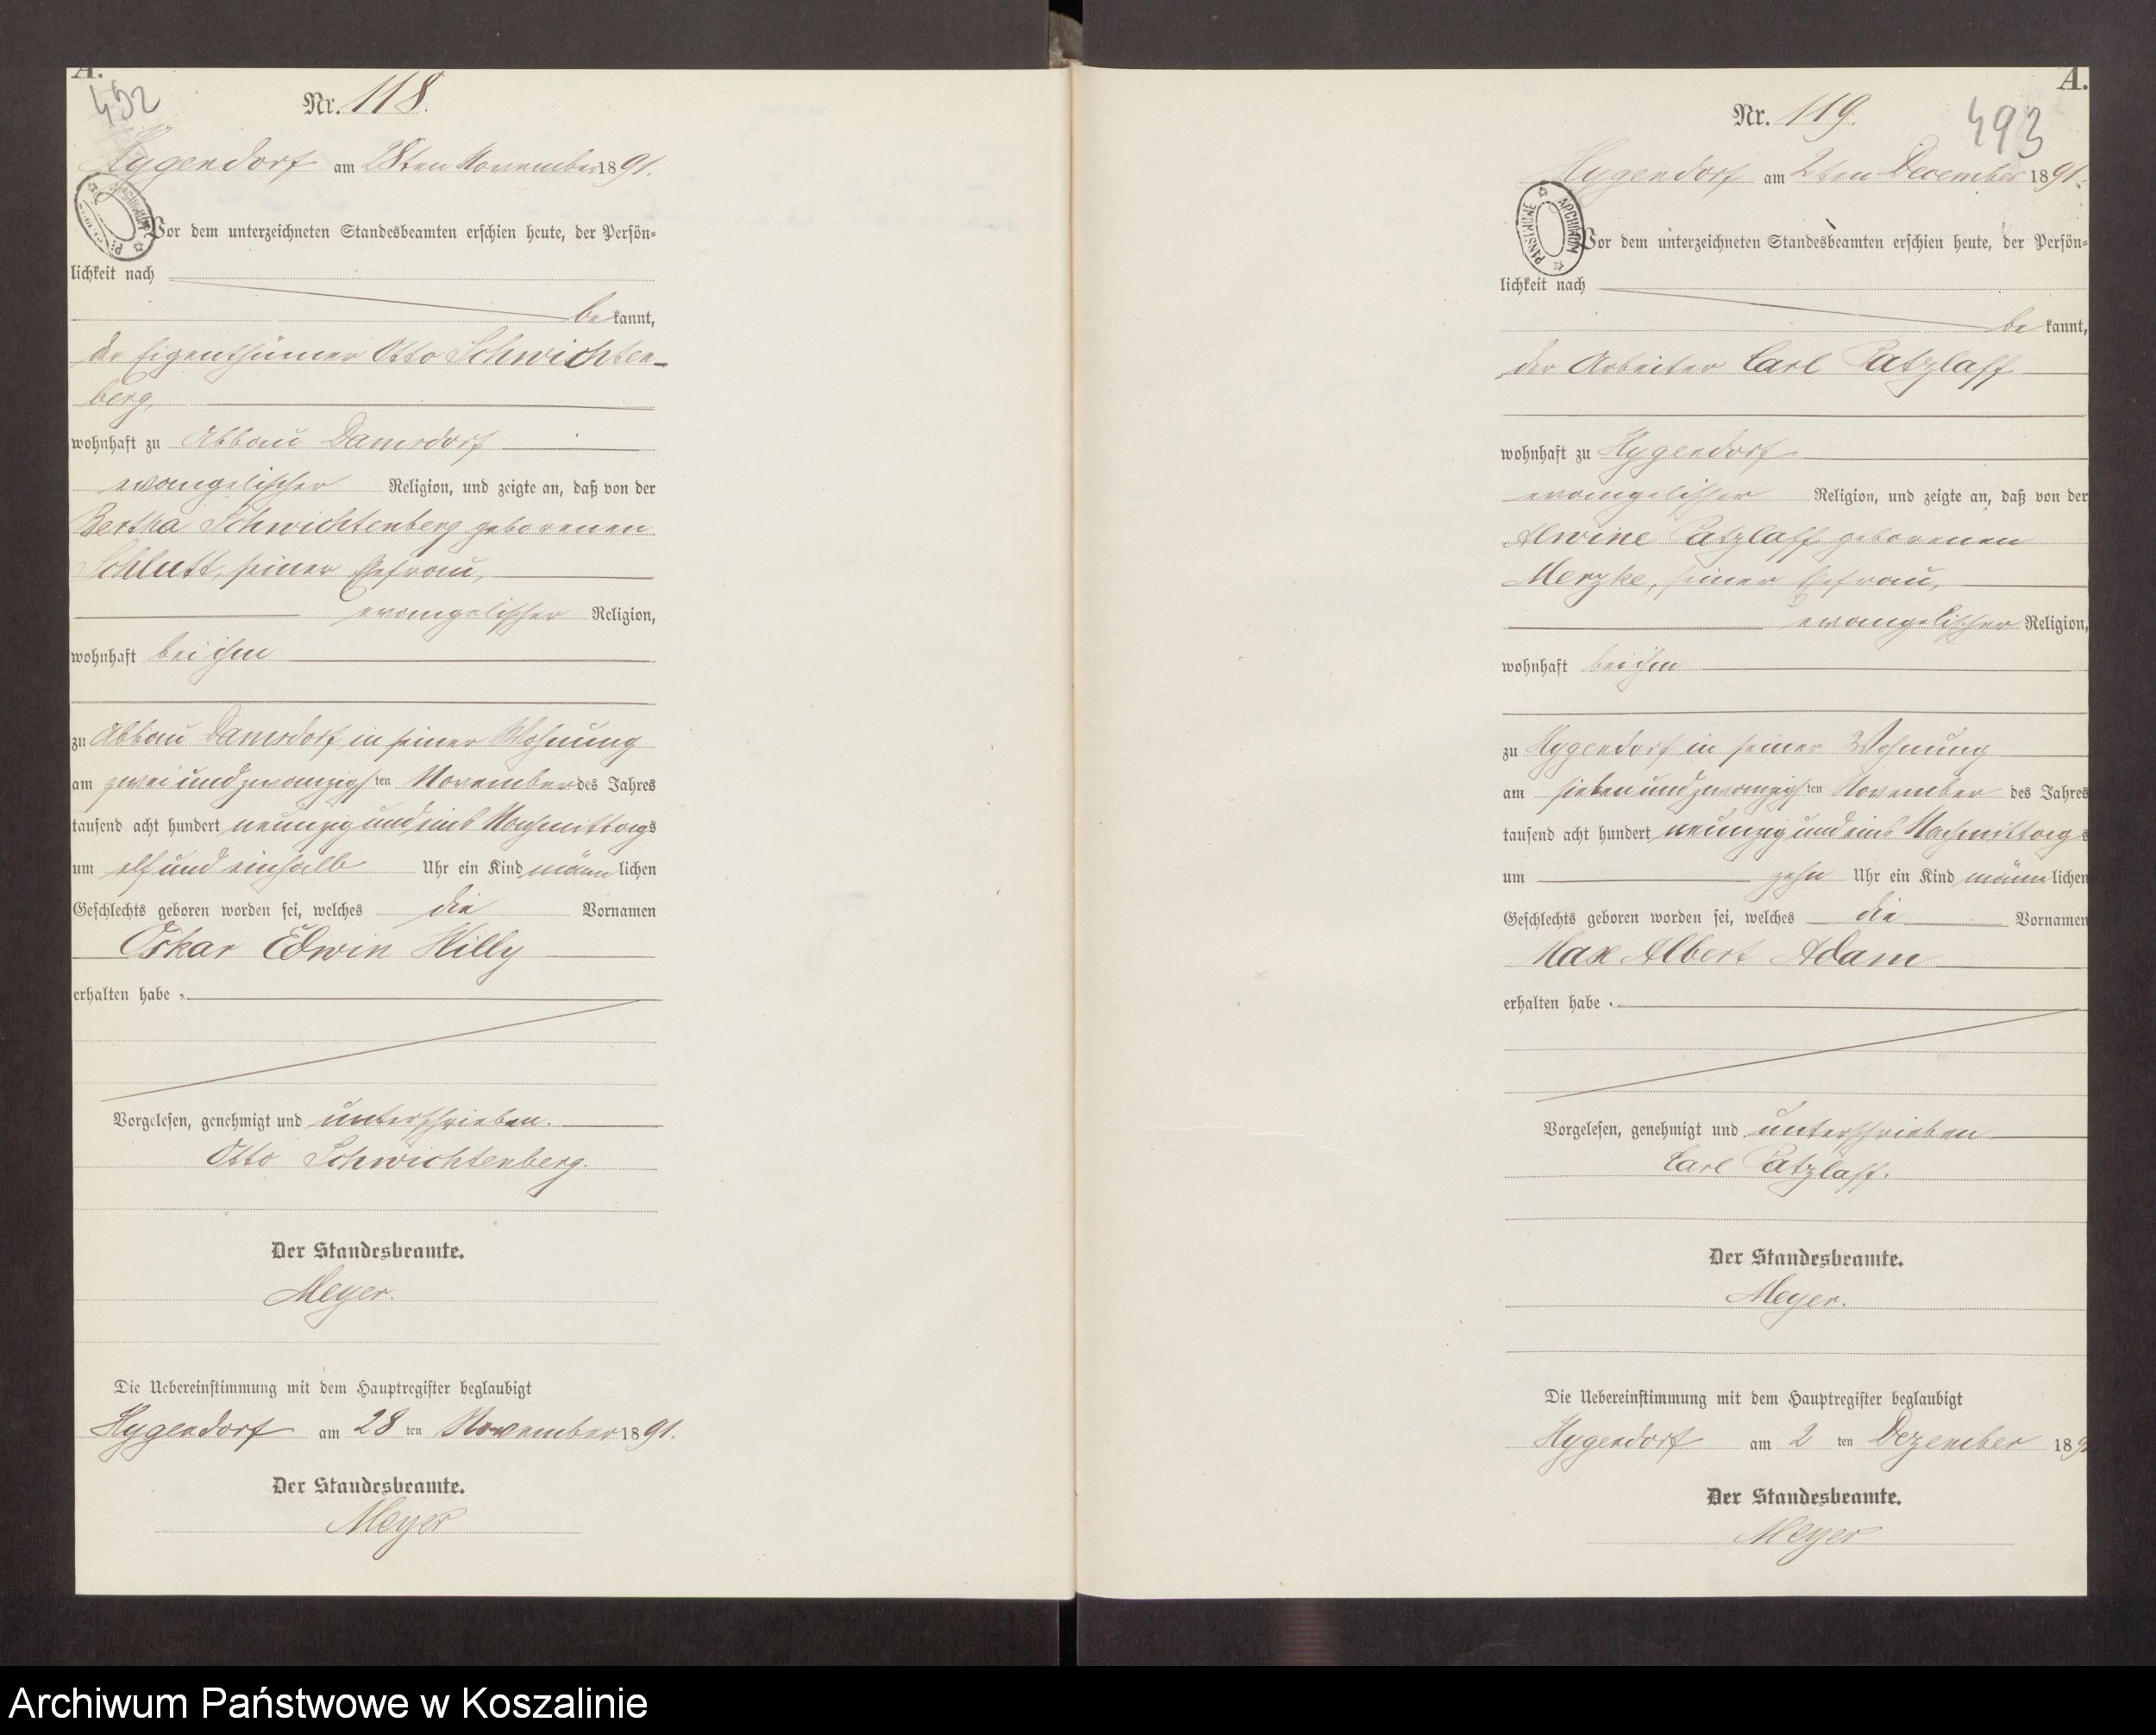 A.
492
Nr. 118.
Hygendorf am 28ten November 1891.
Vor dem unterzeichneten Standesbeamten erschien heute, der Persön-
lichkeit nach
be kannt,
der Eigenthümer Otto Schwichten-
berg,
wohnhaft zu Abbau Damsdorf
evangelischer Religion, und zeigte an, daß von der
Bertha Schwichtenberg geborenen
Schlutt, seiner Ehefrau,
evangelischer Religion,
wohnhaft bei ihm
zu Abbau Damsdorf in seiner Wohnung
am zwei und zwanzigsten November des Jahres
tausend acht hundert neunzig und eins Nachmittags
um elf und einhalb Uhr ein Kind männlichen
Geschlechts geboren worden sei, welches die Vornamen
Oskar Edwin Willy
erhalten habe.
Vorgelesen, genehmigt und unterschrieben.
Otto Schwichtenberg.
Der Standesbeamte.
Meyer.
Die Uebereinstimmung mit dem Hauptregister beglaubigt
Hygendorf am 28 ten November 1891.
Der Standesbeamte.
Meyer
A.
493
Nr. 119.
Hygendorf am 2ten December 1891.
PAŃSTWOWE ARCHIWUM
Vor dem unterzeichneten Standesbeamten erschien heute, der Persön-
lichkeit nach
be kannt,
der Arbeiter Carl Patzlaff
wohnhaft zu Hygendorf
evangelischer Religion, und zeigte an, daß von der
Alwine Patzlaff geborenen
Merzke, seiner Ehefrau,
evangelischer Religion,
wohnhaft bei ihm
zu Hygendorf in seiner Wohnung
am sieben und zwanzigsten November des Jahres
tausend acht hundert neunzig und eins Nachmittags
um zehn Uhr ein Kind männlichen
Geschlechts geboren worden sei, welches die Vornamen
Max Albert Adam
erhalten habe.
Vorgelesen, genehmigt und unterschrieben
Carl Patzlaff.
Der Standesbeamte.
Meyer.
Die Uebereinstimmung mit dem Hauptregister beglaubigt
Hygendorf am 2 ten Dezember 189
Der Standesbeamte.
Meyer
Archiwum Państwowe w Koszalinie